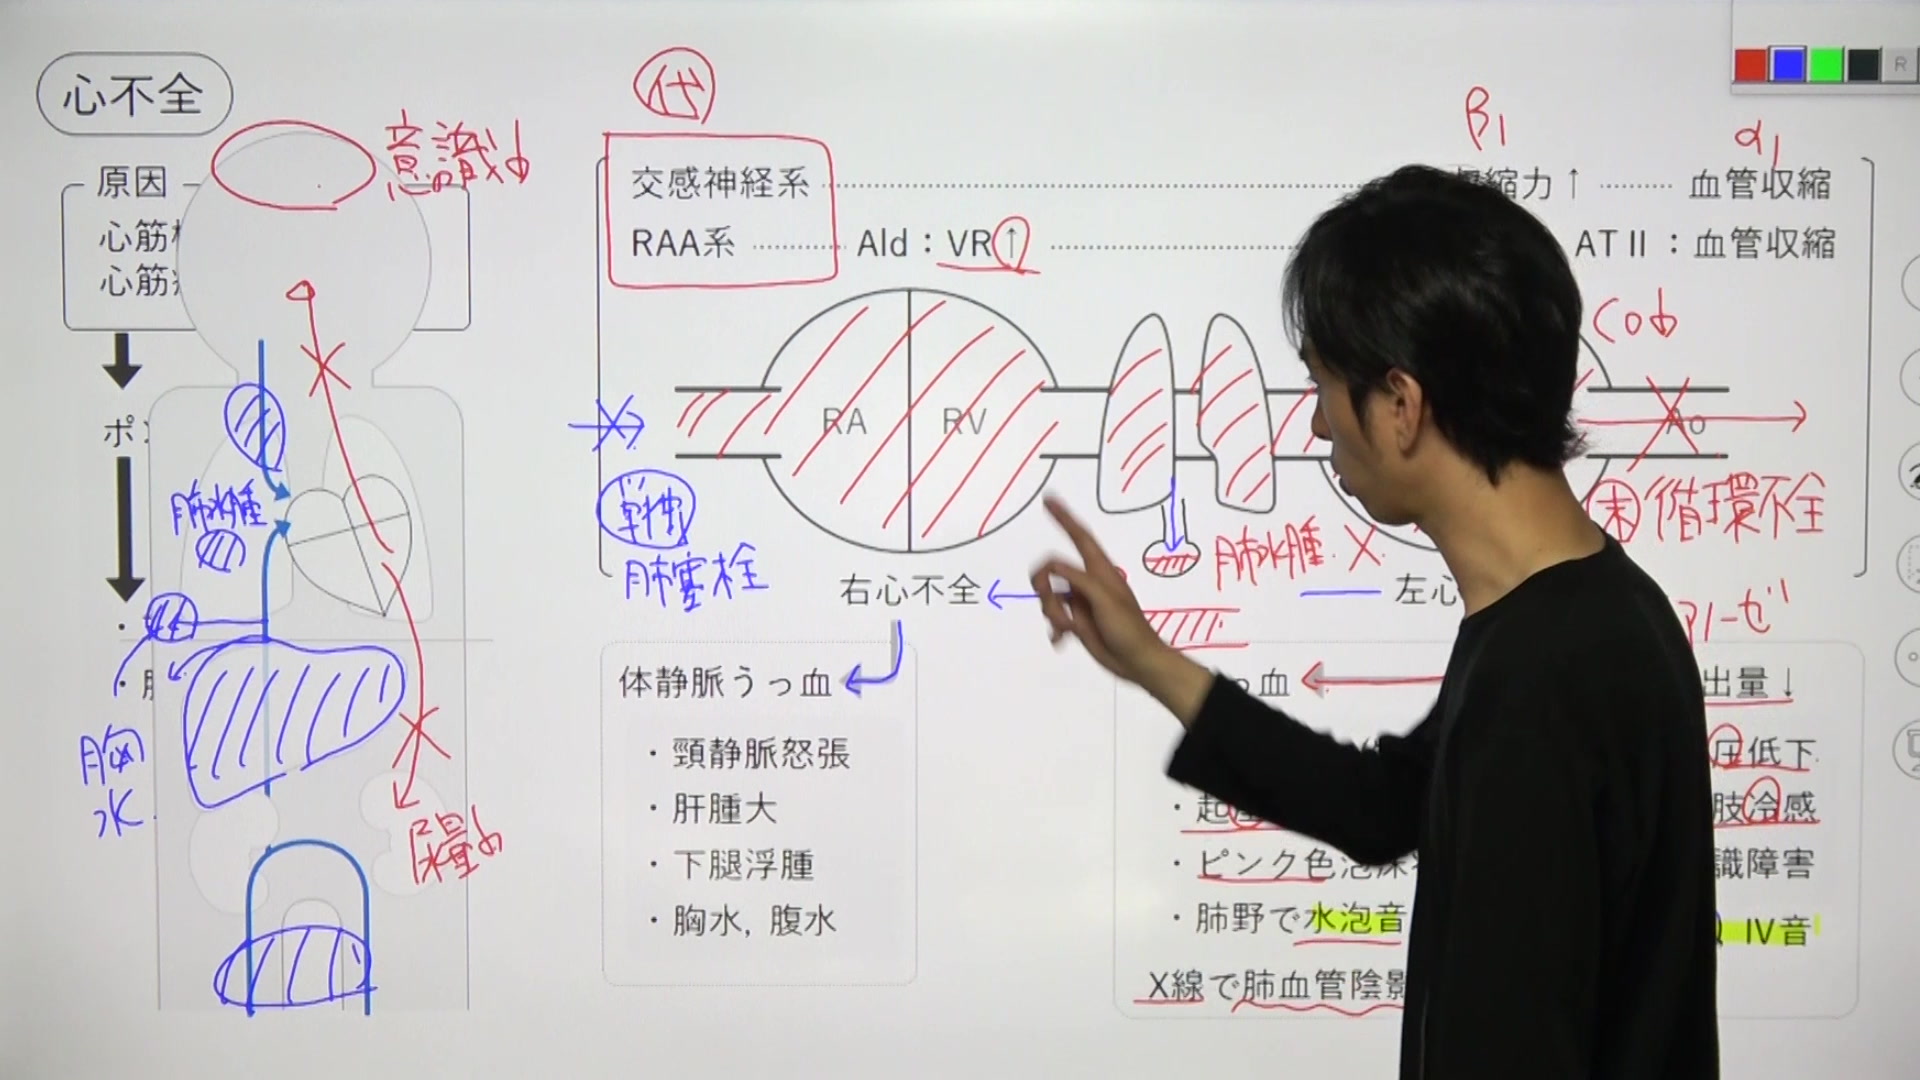 心不全
意識↓
代
β1
α1
原因
心筋
心筋
交感神経系
縮力↑
血管収縮
RAA系
Ald：VR↑
AT II ：血管収縮
CO↓
RA
RV
Ao
ポ
肺水腫
単独
肺塞栓
肺水腫
末循環不全
右心不全
左心
体静脈うっ血
っ血
出量↓
・頸静脈怒張
圧低下
胸水
・肝腫大
・起
肢冷感
尿量↓
・下腿浮腫
・ピンク色泡沫
識障害
・胸水, 腹水
・肺野で水泡音
IV音
X線で肺血管陰影
R